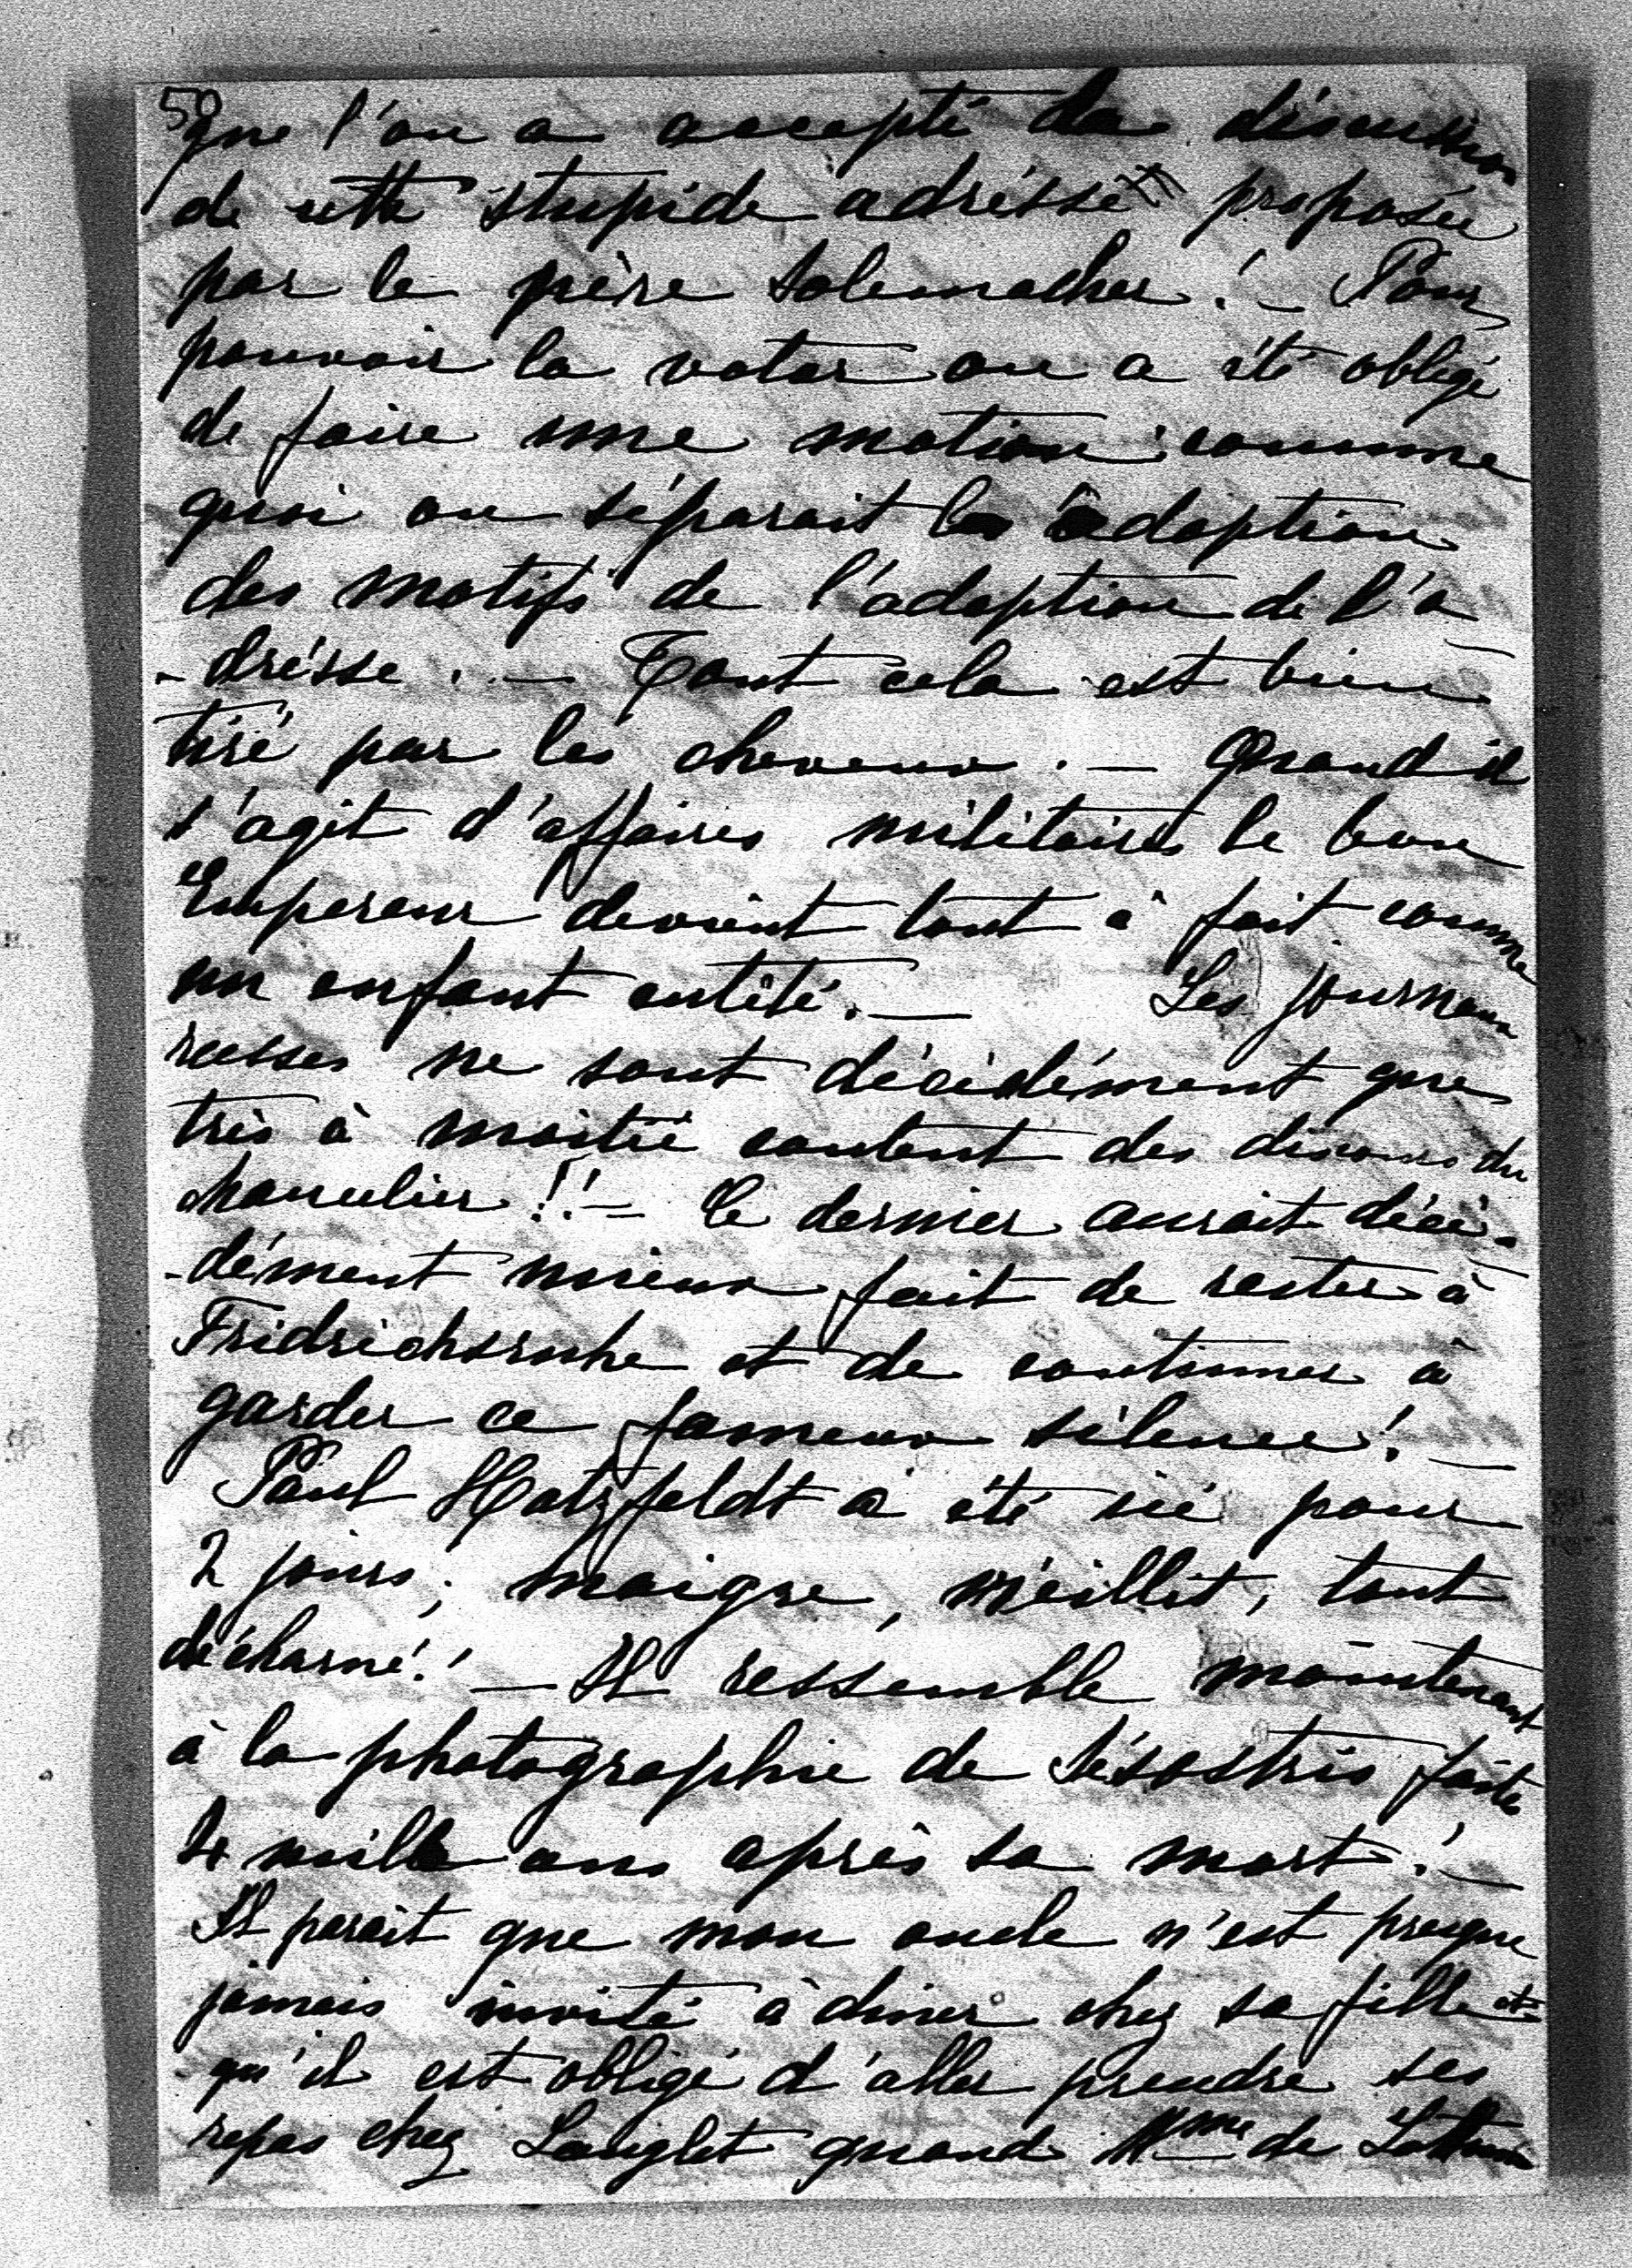 50
que l'on a accepté la discussion
de cette stupide adrésse proposée
par le père Solemacher! – Pour
pouvoir la voter on a été obligé
de faire une motion comme
quoi on séparait l'adoption
des motifs de l'adoption de l'a
-drésse. – Tout cela est bien
tiré par les cheveux. – Quand il
s'agit d'affaires militaires le bon
Empereur devient tout à fait comme
un enfant entêté. – Les journaux
russes ne sont décidément que
très à moitié content des discours du
chancelier!! – Ce dernier aurait déci-
-dément mieux fait de rester à
Fridrichsruhe et de continuer à
garder ce fameux silence! –
Paul Hatzfeldt a été ici pour
2 jours; maigre, vieillit, tout
décharné! – Il ressemble maintenant
à la photographie de Sésostris faite
4 mille ans après sa mort! –
Il parait que mon oncle n'est presque
jamais invité à diner chez sa fille et
qu'il est obligé d'aller prendre ses
repas chez Langlet quand Mme de